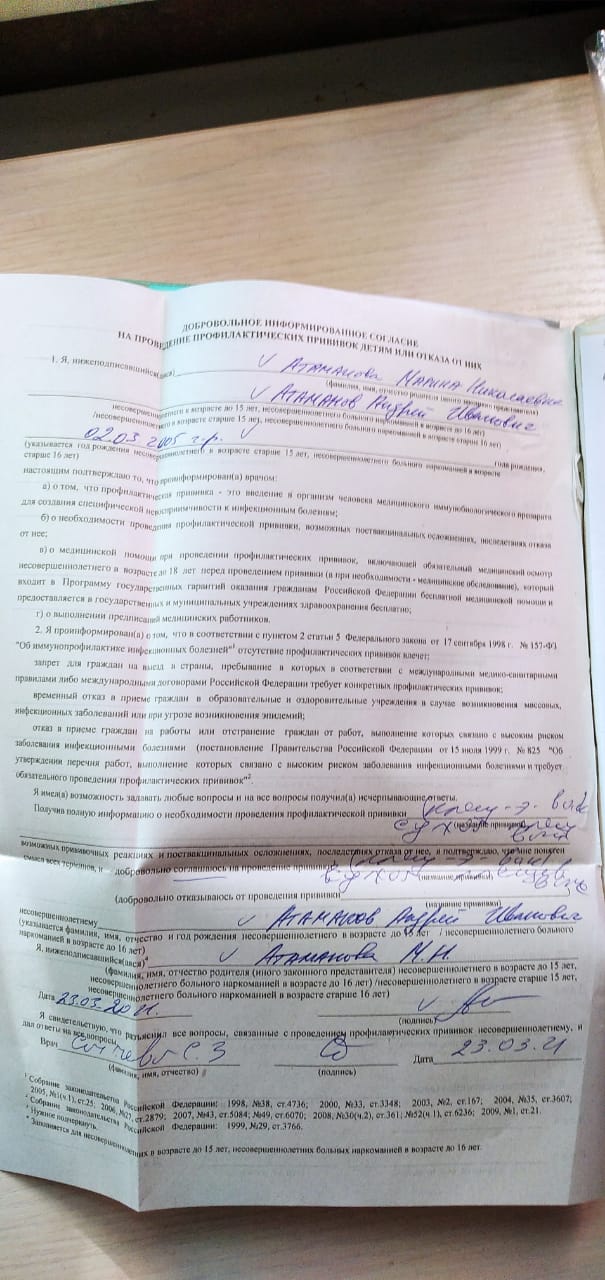 ДОБРОВОЛЬНОЕ ИНФОРМИРОВАННОЕ СОГЛАСИЕ
НА ПРОВЕДЕНИЕ ПРОФИЛАКТИЧЕСКИХ ПРИВИВОК ДЕТЯМ ИЛИ ОТКАЗА ОТ НИХ
1. Я, нижеподписавшийся(аяся) Атаманова Марина Николаевна
(фамилия, имя, отчество родителя (иного законного представителя)
Атаманов Андрей Иванович
несовершеннолетнего в возрасте до 15 лет, несовершеннолетнего больного наркоманией в возрасте до 16 лет)
/несовершеннолетнего в возрасте старше 15 лет, несовершеннолетнего больного наркоманией в возрасте старше 16 лет)
02.03 2005 г.р. года рождения,
(указывается год рождения несовершеннолетнего в возрасте старше 15 лет, несовершеннолетнего больного наркоманией в возрасте
старше 16 лет)
настоящим подтверждаю то, что проинформирован(а) врачом:
а) о том, что профилактическая прививка - это введение в организм человека медицинского иммунобиологического препарата
для создания специфической невосприимчивости к инфекционным болезням;
б) о необходимости проведения профилактической прививки, возможных поствакцинальных осложнениях, последствиях отказа
от нее;
в) о медицинской помощи при проведении профилактических прививок, включающей обязательный медицинский осмотр
несовершеннолетнего в возрасте до 18 лет перед проведением прививки (а при необходимости - медицинское обследование), который
входит в Программу государственных гарантий оказания гражданам Российской Федерации бесплатной медицинской помощи и
предоставляется в государственных и муниципальных учреждениях здравоохранения бесплатно;
г) о выполнении предписаний медицинских работников.
2. Я проинформирован(а) о том, что в соответствии с пунктом 2 статьи 5 Федерального закона от 17 сентября 1998 г. № 157-ФЗ
"Об иммунопрофилактике инфекционных болезней"¹ отсутствие профилактических прививок влечет:
запрет для граждан на выезд в страны, пребывание в которых в соответствии с международными медико-санитарными
правилами либо международными договорами Российской Федерации требует конкретных профилактических прививок;
временный отказ в приеме граждан в образовательные и оздоровительные учреждения в случае возникновения массовых,
инфекционных заболеваний или при угрозе возникновения эпидемий;
отказ в приеме граждан на работы или отстранение граждан от работ, выполнение которых связано с высоким риском
заболевания инфекционными болезнями (постановление Правительства Российской Федерации от 15 июля 1999 г. № 825 "Об
утверждении перечня работ, выполнение которых связано с высоким риском заболевания инфекционными болезнями и требует
обязательного проведения профилактических прививок"².
Я имел(а) возможность задавать любые вопросы и на все вопросы получил(а) исчерпывающие ответы.
Получив полную информацию о необходимости проведения профилактической прививки
(название прививки)
возможных прививочных реакциях и поствакцинальных осложнениях, последствиях отказа от нее, я подтверждаю, что мне понятен
смысл всех терминов, и добровольно соглашаюсь на проведение прививки
(название прививки)
(добровольно отказываюсь от проведения прививки
(название прививки)
несовершеннолетнему Атаманов Андрей Иванович
(указывается фамилия, имя, отчество и год рождения несовершеннолетнего в возрасте до 15 лет / несовершеннолетнего больного
наркоманией в возрасте до 16 лет)
Я, нижеподписавшийся(аяся)⁴ Атаманова М.Н.
(фамилия, имя, отчество родителя (иного законного представителя) несовершеннолетнего в возрасте до 15 лет,
несовершеннолетнего больного наркоманией в возрасте до 16 лет) /несовершеннолетнего в возрасте старше 15 лет,
несовершеннолетнего больного наркоманией в возрасте старше 16 лет)
Дата 23.03.2011.
(подпись)
Я свидетельствую, что разъяснил все вопросы, связанные с проведением профилактических прививок несовершеннолетнему, и
дал ответы на все вопросы.
Врач С. З Дата 23.03.21
(фамилия, имя, отчество) (подпись)
¹ Собрание законодательства Российской Федерации: 1998, №38, ст.4736; 2000, №33, ст.3348; 2003, №2, ст.167; 2004, №35, ст.3607;
2005, №1(ч.1), ст.25; 2006, №27, ст.2879; 2007, №43, ст.5084; №49, ст.6070; 2008, №30(ч.2), ст.361; №52(ч 1), ст.6236; 2009, №1, ст.21.
² Собрание законодательства Российской Федерации: 1999, №29, ст.3766.
³ Нужное подчеркнуть.
⁴ Заполняется для несовершеннолетних в возрасте до 15 лет, несовершеннолетних больных наркоманией в возрасте до 16 лет.